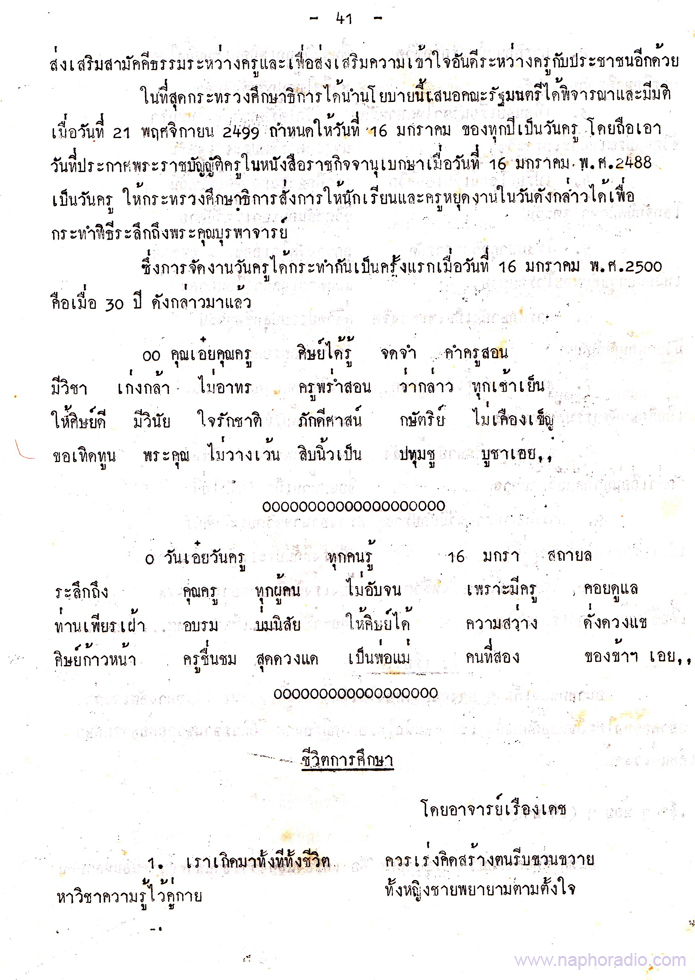 - 41 -
ส่งเสริมสามัคคีธรรมระหว่างครูและเพื่อส่งเสริมความเข้าใจอันดีระหว่างครูกับประชาชนอีกด้วย
ในที่สุดกระทรวงศึกษาธิการได้นำนโยบายนี้เสนอคณะรัฐมนตรีได้พิจารณาและมีมติ
เมื่อวันที่ 21 พฤศจิกายน 2499 กำหนดให้วันที่ 16 มกราคม ของทุกปีเป็นวันครู โดยถือเอา
วันที่ประกาศพระราชบัญญัติครูในหนังสือราชกิจจานุเบกษาเมื่อวันที่ 16 มกราคม พ.ศ.2488
เป็นวันครู ให้กระทรวงศึกษาธิการสั่งการให้นักเรียนและครูหยุดงานในวันดังกล่าวได้เพื่อ
กระทำพิธีระลึกถึงพระคุณบุรพาจารย์
ซึ่งการจัดงานวันครูได้กระทำกันเป็นครั้งแรกเมื่อวันที่ 16 มกราคม พ.ศ.2500
คือเมื่อ 30 ปี ดังกล่าวมาแล้ว
๐๐ คุณเอ๋ยคุณครู ศิษย์ได้รู้ จดจำ คำครูสอน
มีวิชา เก่งกล้า ไม่อาทร ครูพร่ำสอน ว่ากล่าว ทุกเช้าเย็น
ให้ศิษย์ดี มีวินัย ใจรักชาติ ภักดีศาสน์ กษัตริย์ ไม่เคืองเข็ญ
ขอเทิดทูน พระคุณ ไม่วางเว้น สิบนิ้วเป็น ปทุมชู บูชาเอย,,
oooooooooooooooooooo
๐ วันเอ๋ยวันครู ทุกคนรู้ 16 มกรา สถายล
ระลึกถึง คุณครู ทุกผู้คน ไม่อับจน เพราะมีครู คอยดูแล
ท่านเพียรเฝ้า อบรม บ่มนิสัย ให้ศิษย์ได้ ความสว่าง ดั่งดวงแข
ศิษย์ก้าวหน้า ครูชื่นชม สุดดวงแด เป็นพ่อแม่ คนที่สอง ของข้าฯ เอย,,
oooooooooooooooooo
ชีวิตการศึกษา
โดยอาจารย์เรืองเดช
1. เราเกิดมาทั้งทีทั้งชีวิต ควรเร่งคิดสร้างตนรีบขวนขวาย
หาวิชาความรู้ไว้คู่กาย ทั้งหญิงชายพยายามตามตั้งใจ
www.naphoradio.com